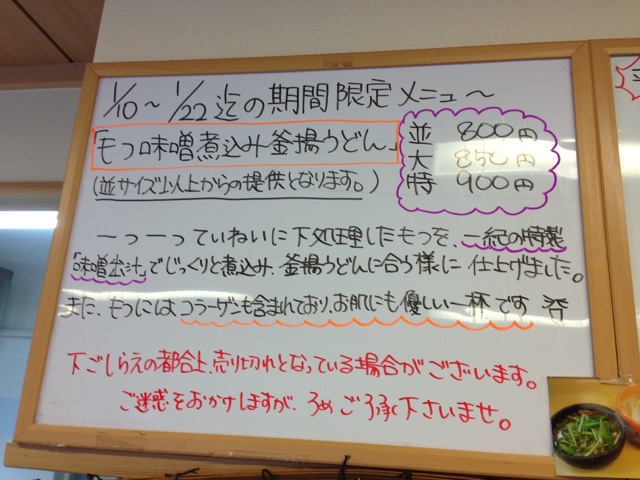 1/10~1/22迄の期間限定メニュー~
「もつ味噌煮込み釜揚うどん」
(並サイズ以上からの提供となります。)
並 800円
大 850円
特 900円
一つ一つていねいに下処理したもつを、一紀の特製
「味噌出汁」でじっくりと煮込み、釜揚うどんに合う様に仕上げました。
また、もつにはコラーゲンも含まれており、お肌にも優しい一杯です。
下ごしらえの都合上、売り切れとなっている場合がございます。
ご迷惑をおかけしますが、予めご了承下さいませ。